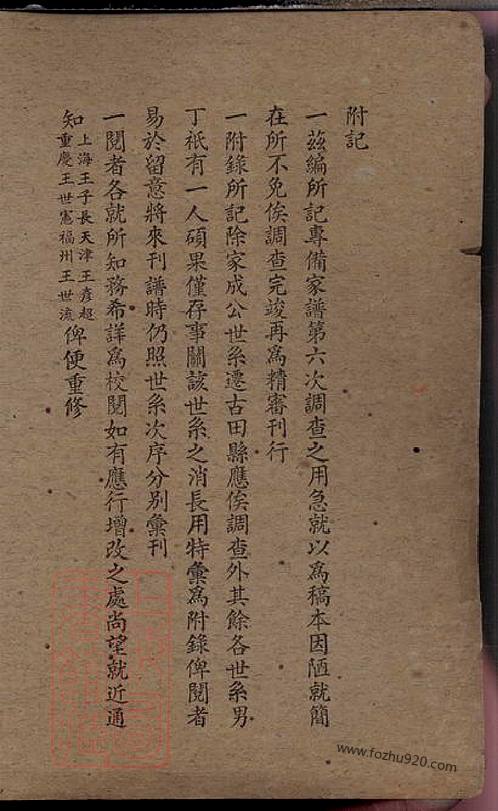 附記
一茲編所記專備家譜第六次調查之用急就以為稿本因陋就簡
在所不免俟調查完竣再為精審刊行
一附錄所記除家成公世系遷古田縣應俟調查外其餘各世系男
丁祇有一人碩果僅存事關該世系之消長用特彙為附錄俾閱者
易於留意將來刊譜時仍照世系次序分別彙刊
一閱者各就所知務希詳為校閱如有應行增改之處尚望就近通
知上海王子長天津王彥超重慶王世憲福州王世流俾便重修
www.fozhu920.com